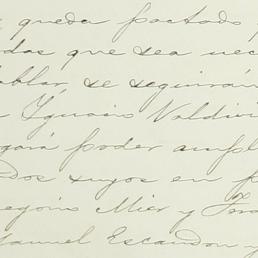 queda pactado
das que sea nec
ablar se seguirán
Ygnacio Valdivi
gará poder ampl
dos suyos en
egorio Mier y
anuel Escandon y